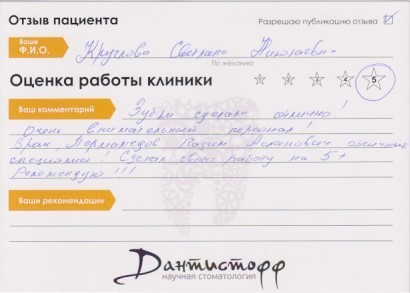 Отзыв пациента
Разрешаю публикацию отзыва
Ваше Ф.И.О.
Круглова Светлана Николаевн
По желанию
Оценка работы клиники
4 5
Ваш комментарий
Зубы сделали отлично!
Очень внимательный персонал!
Врач Вадим отличный
специалист! Сделал свою работу на 5+
Рекомендую!!!
Ваши рекомендации
Дантистофф
научная стоматология